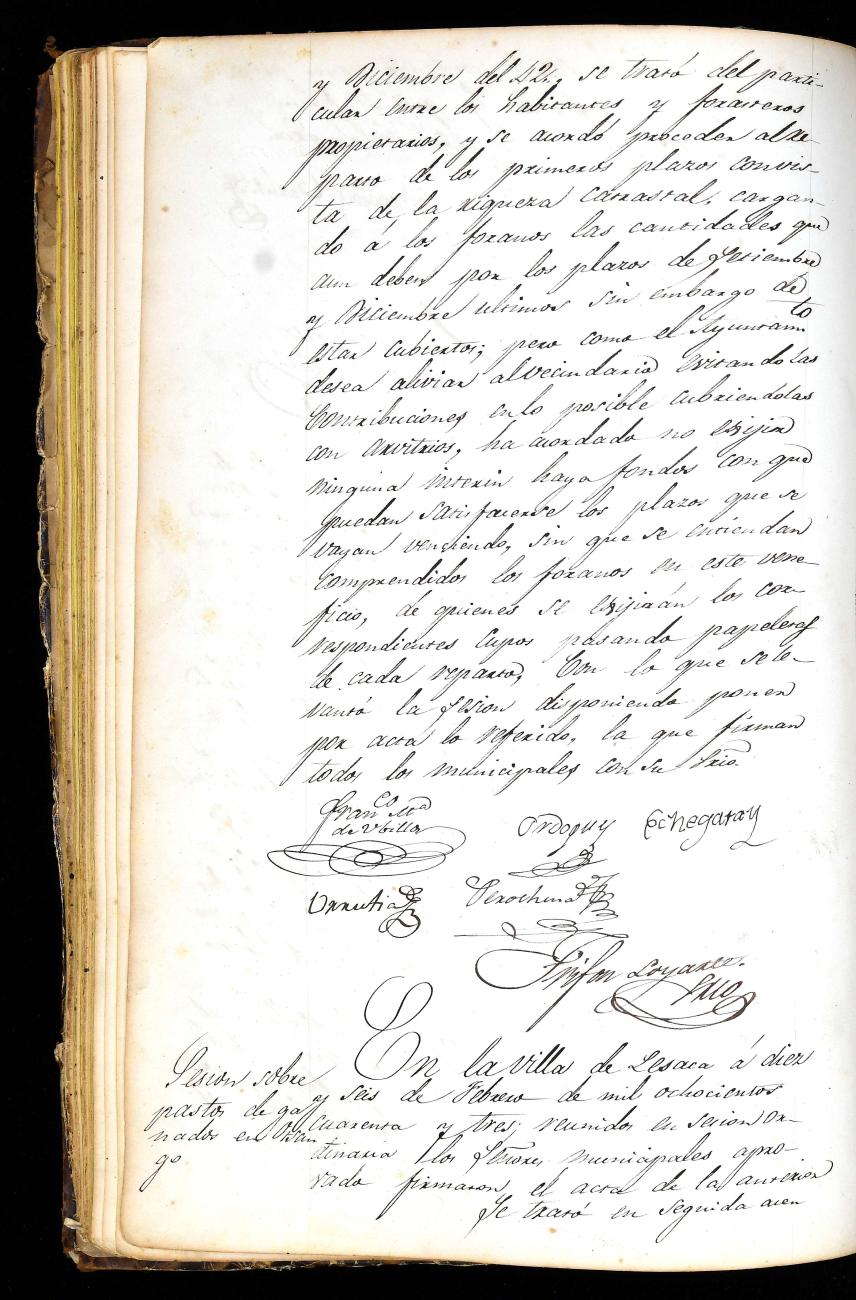 y Diciembre del 42, se trató del parti-
cular entre los habitantes y forasteros
propietarios, y se acordó proceder al re-
parto de los primeros plazos con vis-
ta de la riqueza catrastal, cargan-
do á los foranos las cantidades que
aun deben por los plazos de Setiembre
y Diciembre ultimos sin embargo de
estar cubiertos; pero como el Ayuntamto
desea aliviar al vecindario evitando las
Contribuciones en lo posible cubriendolas
con arvitrios, ha acordado no exijir
ninguna interin haya fondos con que
puedan satisfacerse los plazos que se
vayan venciendo, sin que se entiendan
comprendidos los foranos en este vene-
ficio, de quienes se exijirán los cor-
respondientes cupos pasando papeletas
de cada reparto, Con lo que se le-
vantó la Sesion disponiendo poner
por acta lo referido, la que firman
todos los municipales con su Srio.
Franco Ma
de Vbilla
Ordoquy Echegaray
Urrutia Perochena
Trifon Loyarte.
Srio
Sesion sobre
pastos de ga
nados en Bian
go
En la villa de Lesaca á diez
y seis de Febrero de mil ochocientos
cuarenta y tres; reunidos en sesion or-
dinaria los Señores municipales apro-
vado firmaron el acta de la anterior
Se trató en seguida acer